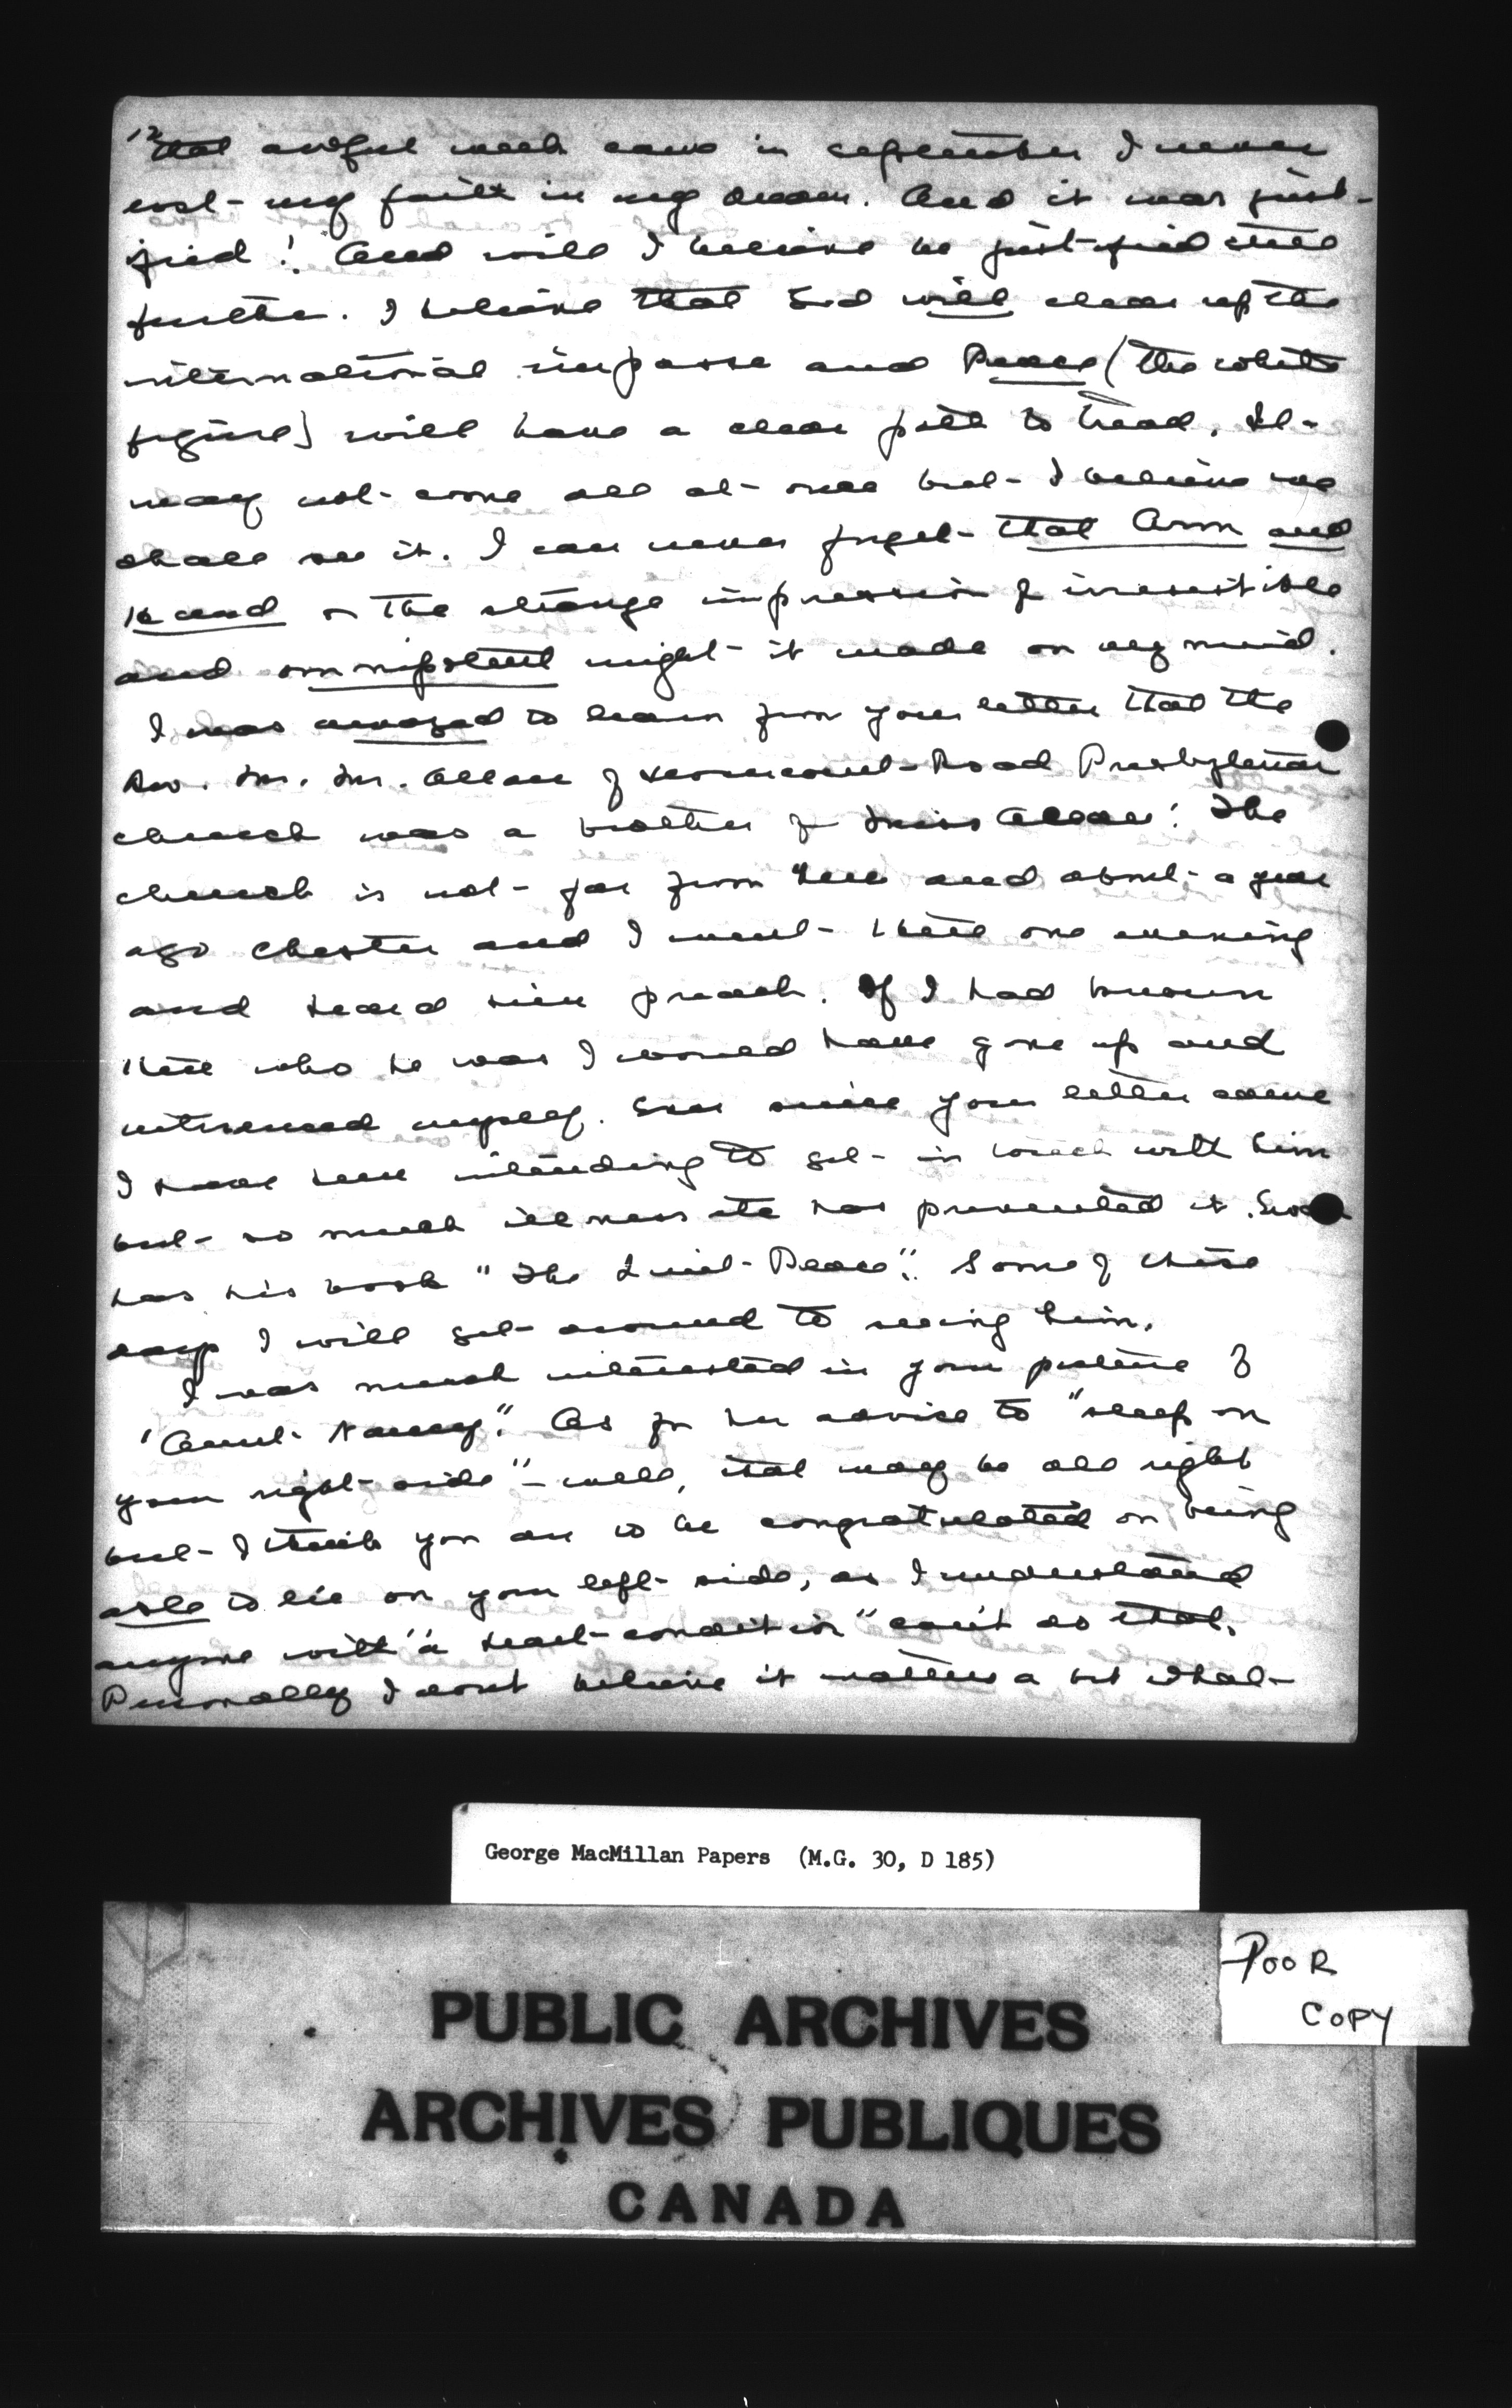 12
that awful week came in september I never
lost my faith in my dream. And it was just-
ified! And will I believe be justified still
further. I believe that God will clear up the
international impasse and Peace (the white
figure) will have a clear path to tread. It
may not come all at once but I believe we
shall see it. I can never forget that Arm and
Hand or the strange impression of irresistible
and omnipotent might it made on my mind.
I was amazed to learn from your letter that the
Rev. Mr. Mr. Allan of Road Presbyterian
church was a brother of Miss Allan! The
church is not far from here and about a year
ago Chester and I went there one evening
and heard him preach. If I had known
then who he was I would have gone up and
introduced myself. Ever since your letter came
I have been intending to get in touch with him
but so much illness etc has prevented it.
has his book "The Quiet Place". Some of these
days I will get around to seeing him.
I was much interested in your picture of
"Aunt Nancy". As for her advise to "sleep on
your right side" – well, that may be all right
but I think you are to be congratulated on being
able to lie on your left side, as I understand
anyone with "a heart condition" can't do that.
Personally I dont believe it matters a bit what
George MacMillan Papers (M.G. 30, D 185)
POOR
COPY
PUBLIC ARCHIVES
ARCHIVES PUBLIQUES
CANADA